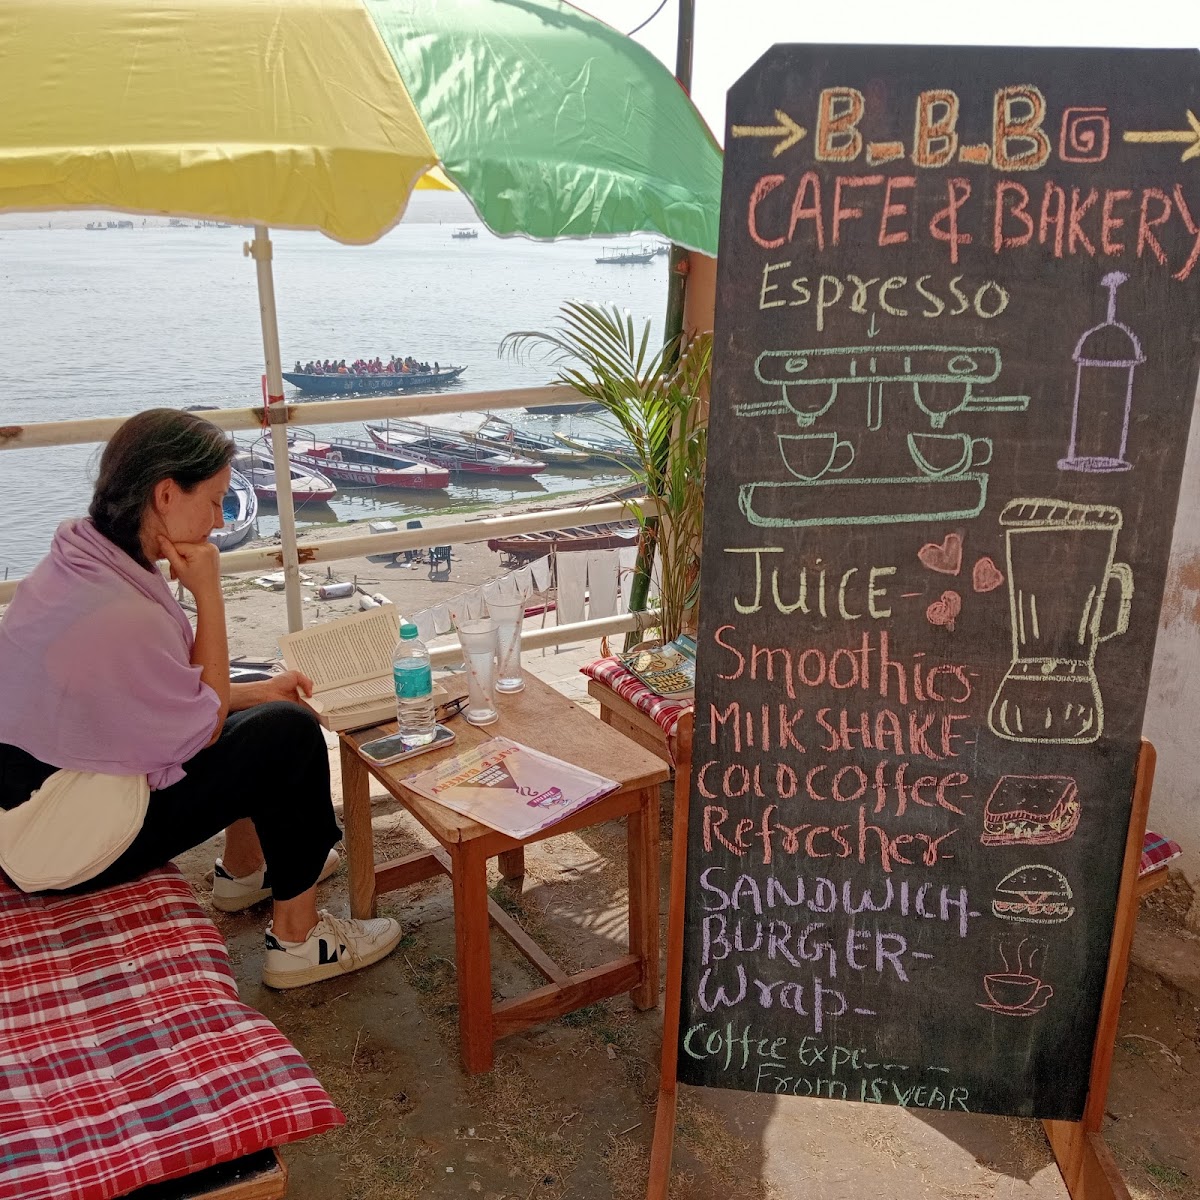 B-B-B
CAFE & BAKERY
Espresso
JUICE-
Smoothies-
MILKSHAKE-
COLDCOFFEE-
Refresher-
SANDWICH-
BURGER-
Wrap-
Coffee Expe---
From 15 YEAR